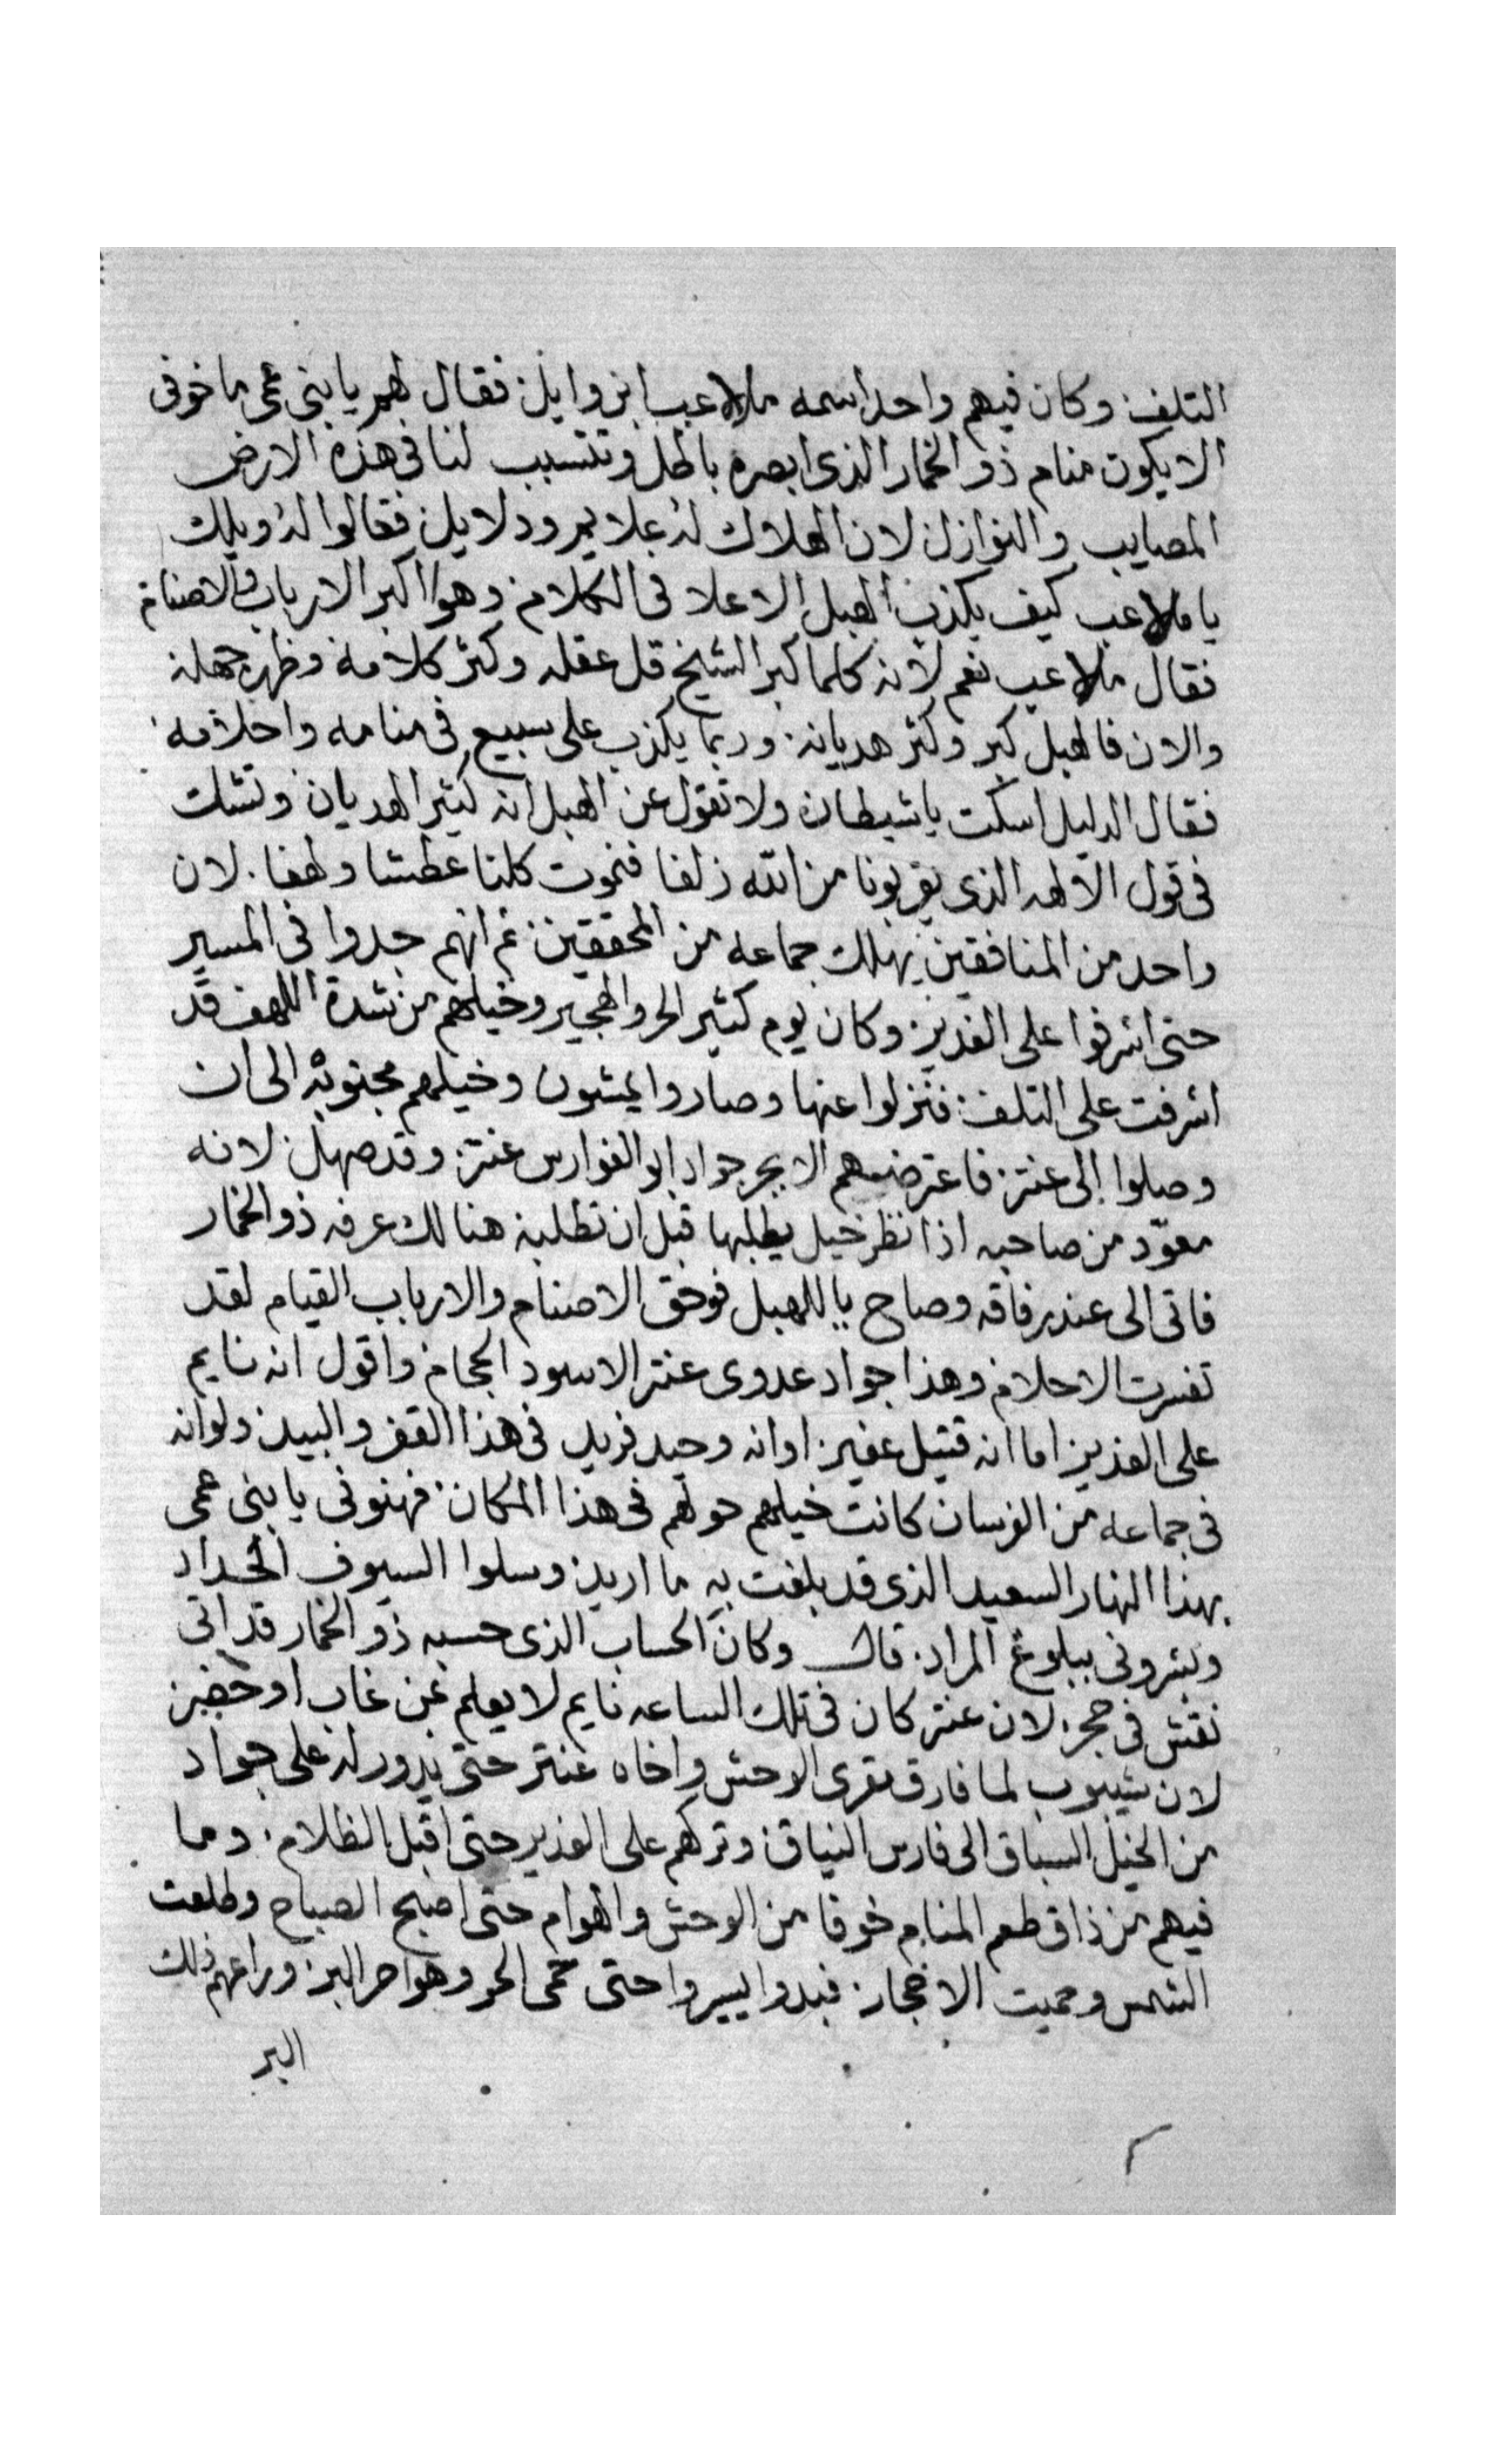 التلف. وكان فيهم واحد اسمه ملاعب ابن وايل. فقال لهم يا بنى عمى ما خوفى
الا يكون منام ذو الخمار الذى ابصره باطل وتتسبب لنا فى هذه الارض
المصايب والنوازل لان الهلاك له علايم ودلايل فقالوا له ويلك
يا ملاعب كيف يكذب الهبل الاعلا فى الكلام. وهو اكبر الارباب والاصنام
فقال ملاعب نعم لانه كلما كبر الشيخ قل عقله وكثر كلامه وظهر جهله
والان فالهبل كبر وكثر هديانه. وربما يكذب على سبيع فى منامه واحلامه.
فقال الدليل اسكت يا شيطان ولا تقول عن الهبل انه كثير الهديان وتشك
فى قول الالهه الذى يقربونا من الله زلفا فنموت كلنا عطشا ولهفا. لان
واحد من المنافقين يهلك جماعه من المحققين. ثم انهم جدوا فى المسير
حتى اشرفوا على الغدير. وكان يوم كثير الحر والهجير وخيلهم من شدة اللهف قد
اشرفت على التلف. فنزلوا عنها وصاروا يمشون وخيلهم مجنوبه الى ان
وصلوا الى عنتر. فاعترضهم الابجر جواد ابو الفوارس عنتر. وقد صهل. لانه
معوّد من صاحبه اذا نظر خيل يطلبها قبل ان تطلبه هنالك عرفه ذو الخمار
فاتى الى عند رفاقه وصاح يا للهبل فوحق الاصنام والارباب القيام لقد
تفسرت الاحلام. وهذا جواد عدوى عنتر الاسود الحجام. واقول انه نايم
على الغدير. اما انه قتيل عفير. اوانه وحيد فريد فى هذا القفر والبيد. ولوانه
فى جماعه من الفرسان كانت خيلهم حولهم فى هذا المكان. فهنونى يا بنى عمى
بهذا النهار السعيد الذى قد بلغت به ما اريد. وسلوا السيوف الحداد
وبشرونى ببلوغ المراد. قال وكان الحساب الذى حسبه ذو الخمار قد اتى
نقش فى حجر. لان عنتر كان فى تلك الساعه نايم لا يعلم بمن غاب او حضر.
لان شيبوب لما فارق مقرى الوحش واخاه عنتر حتى يدور له على جواد
من الخيل السباق الى فارس النياق. وتركهم على الغدير حتى اقبل الظلام. وما
فيهم من ذاق طعم المنام خوفا من الوحش والهوام حتى اصبح الصباح وطلعت
الشمس وحميت الاحجار. فبدوا يسيروا حتى حمى الحر وهواجر البر. وراعهم ذلك
البر